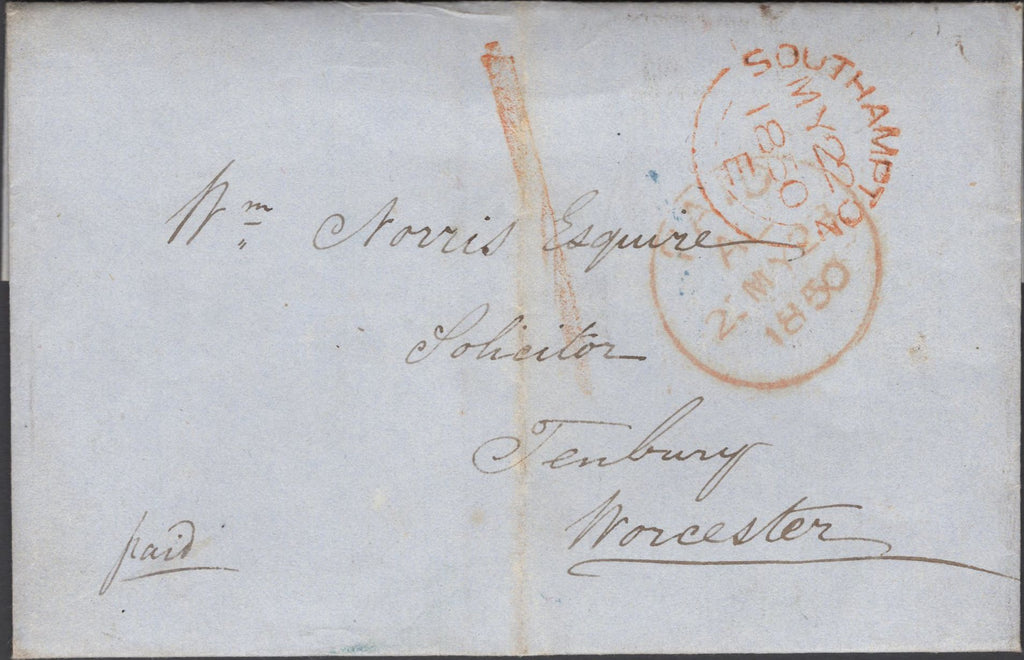 SOUTHAMPTON
MY 22
1850
E
PAID
MY
1850
1
Wm Norris Esquire
Solicitor
Tenbury
Worcester
paid